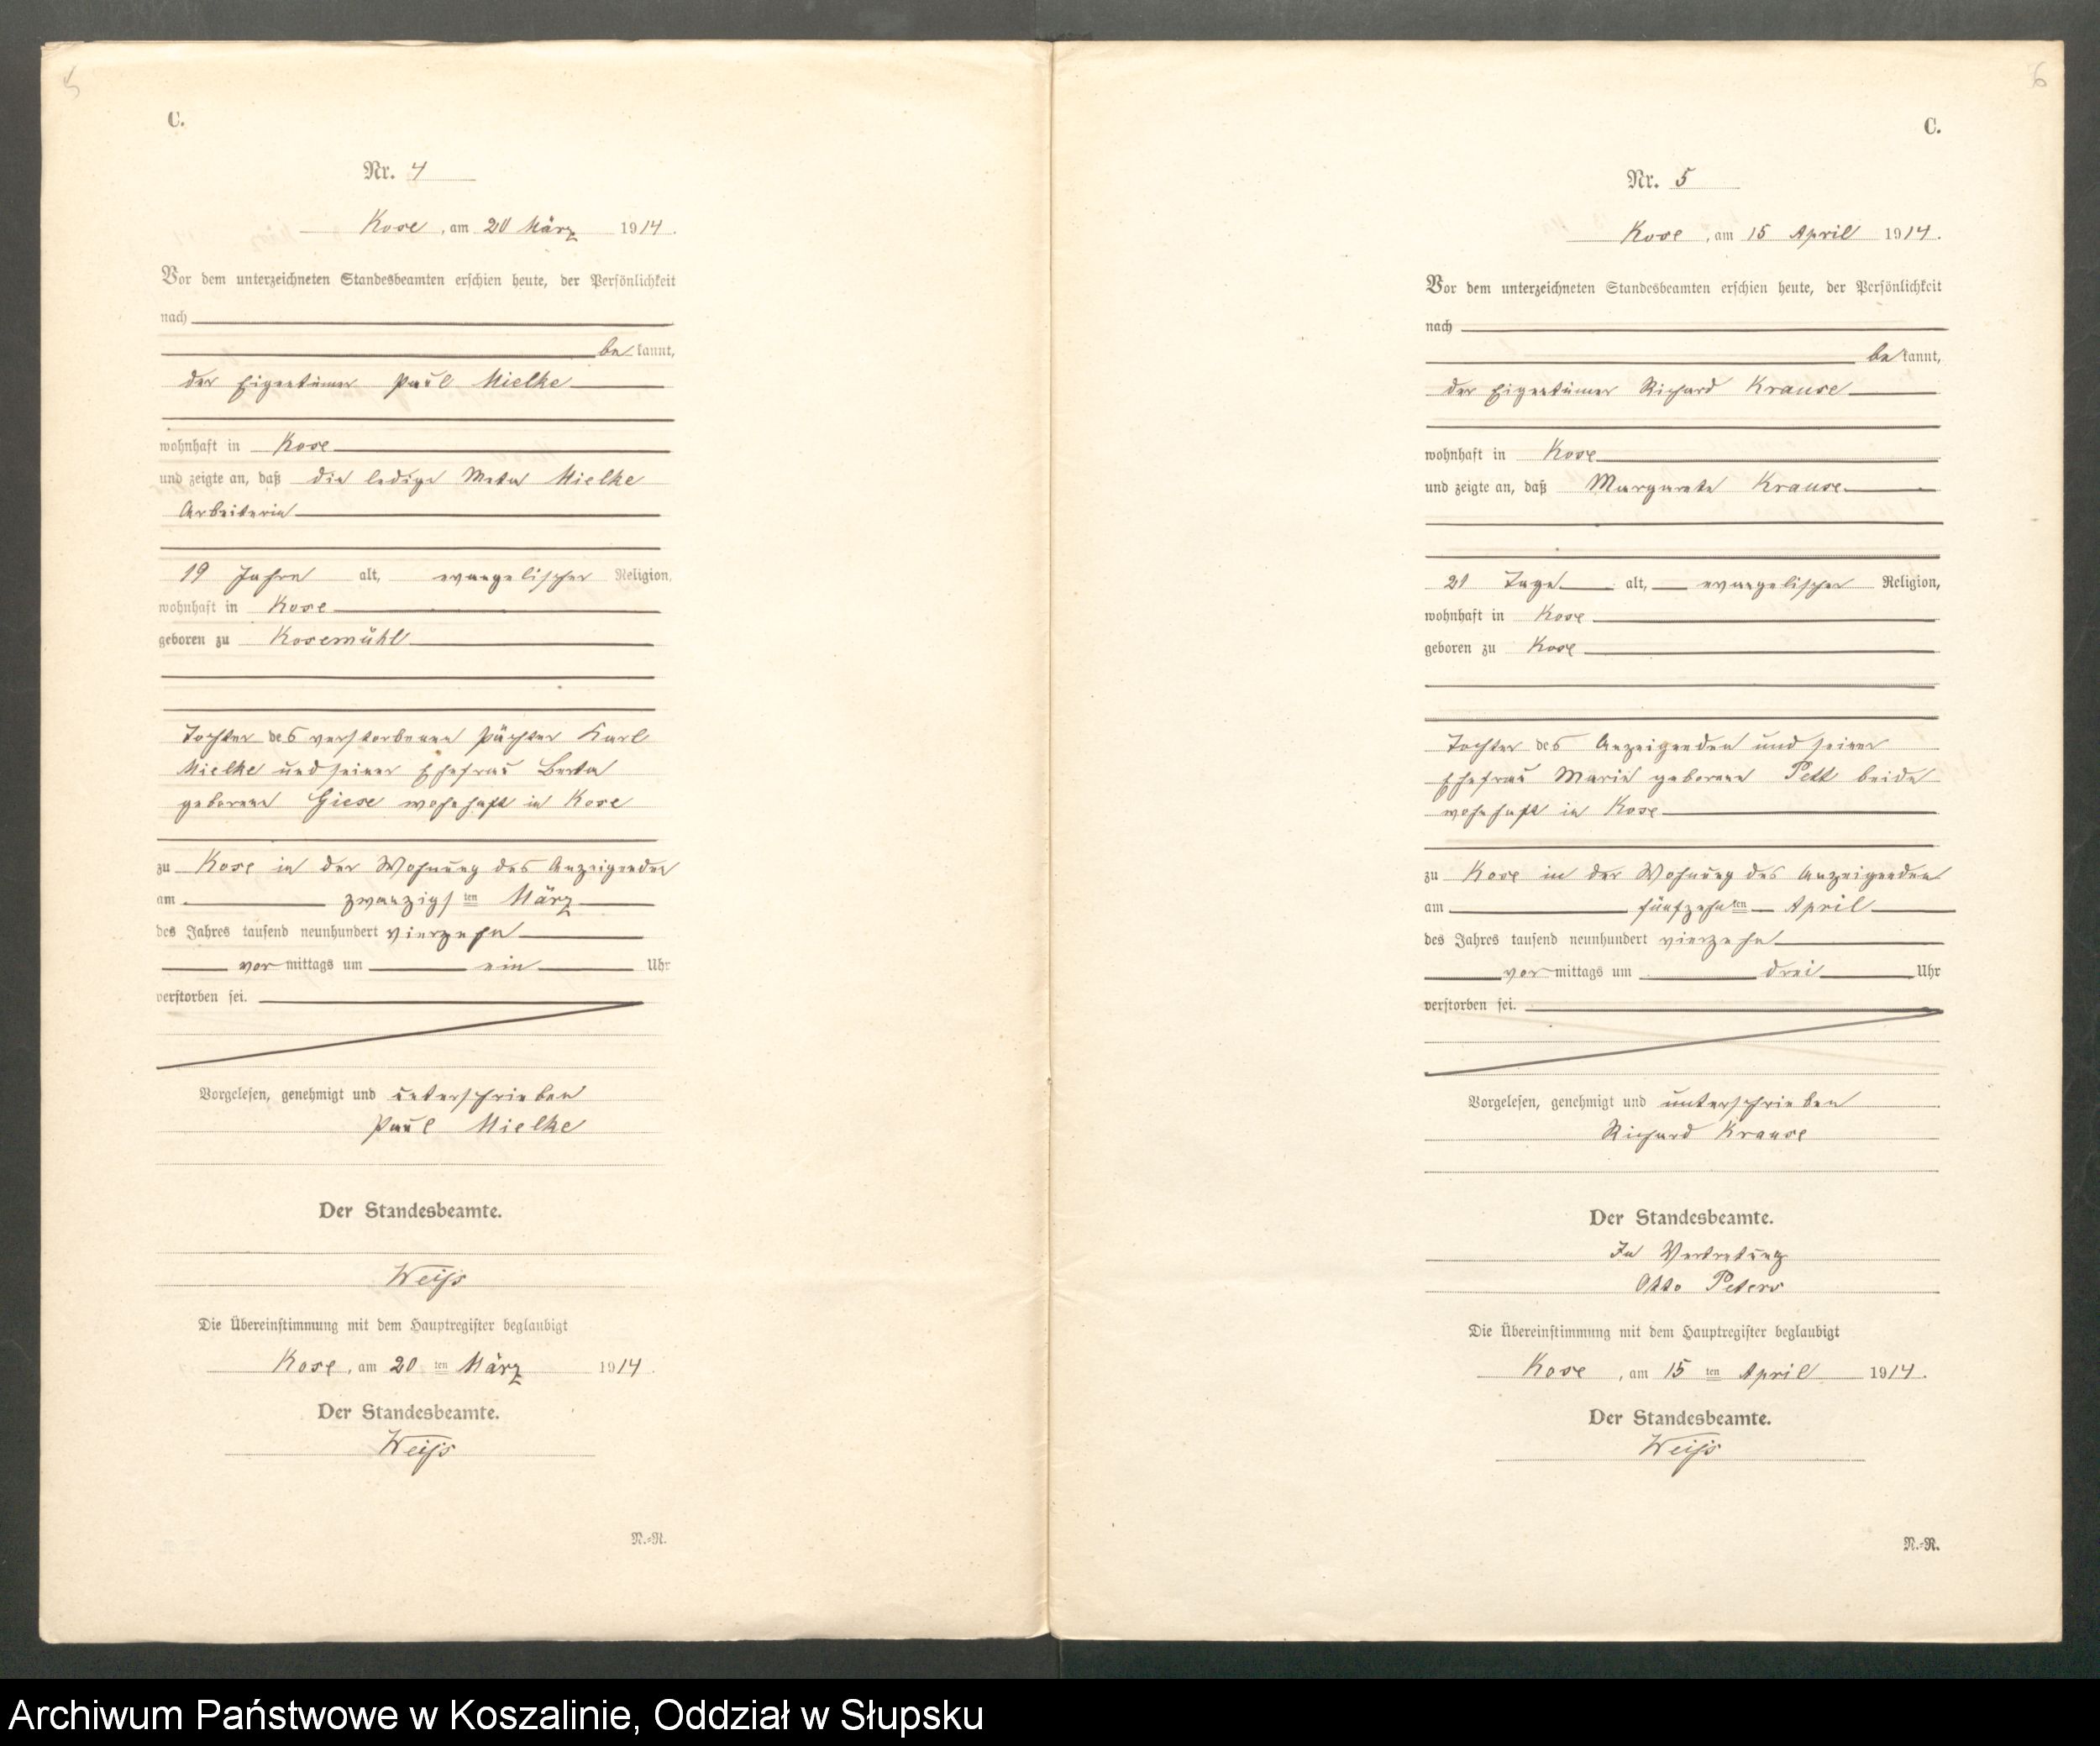 5
C.
Nr. 4
Kose, am 20 März 1914.
Vor dem unterzeichneten Standesbeamten erschien heute, der Persönlichkeit
nach
be kannt,
der Eigentümer Paul Mielke
wohnhaft in Kose
und zeigte an, daß die ledige Meta Mielke
Arbeiterin
19 Jahre alt, evangelischer Religion,
wohnhaft in Kose
geboren zu Kosemühl
Tochter des verstorbenen Pächter Karl
Mielke und seiner Ehefrau Berta
geborene Giese wohnhaft in Kose
zu Kose in der Wohnung des Anzeigenden
am zwanzigsten März
des Jahres tausend neunhundert vierzehn
vor mittags um ein Uhr
verstorben sei.
Vorgelesen, genehmigt und unterschrieben
Paul Mielke
Der Standesbeamte.
Weiss
Die Übereinstimmung mit dem Hauptregister beglaubigt
Kose, am 20 ten März 1914.
Der Standesbeamte.
Weiss
N.=R.
6
C.
Nr. 5
Kose, am 15 April 1914.
Vor dem unterzeichneten Standesbeamten erschien heute, der Persönlichkeit
nach
be kannt,
der Eigentümer Richard Krause
wohnhaft in Kose
und zeigte an, daß Margarete Krause
21 Tage alt, evangelischer Religion,
wohnhaft in Kose
geboren zu Kose
Tochter des Anzeigenden und seiner
Ehefrau Marie geborene Pett beide
wohnhaft in Kose
zu Kose in der Wohnung des Anzeigenden
am fünfzehnten April
des Jahres tausend neunhundert vierzehn
vor mittags um drei Uhr
verstorben sei.
Vorgelesen, genehmigt und unterschrieben
Richard Krause
Der Standesbeamte.
In Vertretung
Otto Peters
Die Übereinstimmung mit dem Hauptregister beglaubigt
Kose, am 15 ten April 1914.
Der Standesbeamte.
Weiss
N.=R.
Archiwum Państwowe w Koszalinie, Oddział w Słupsku